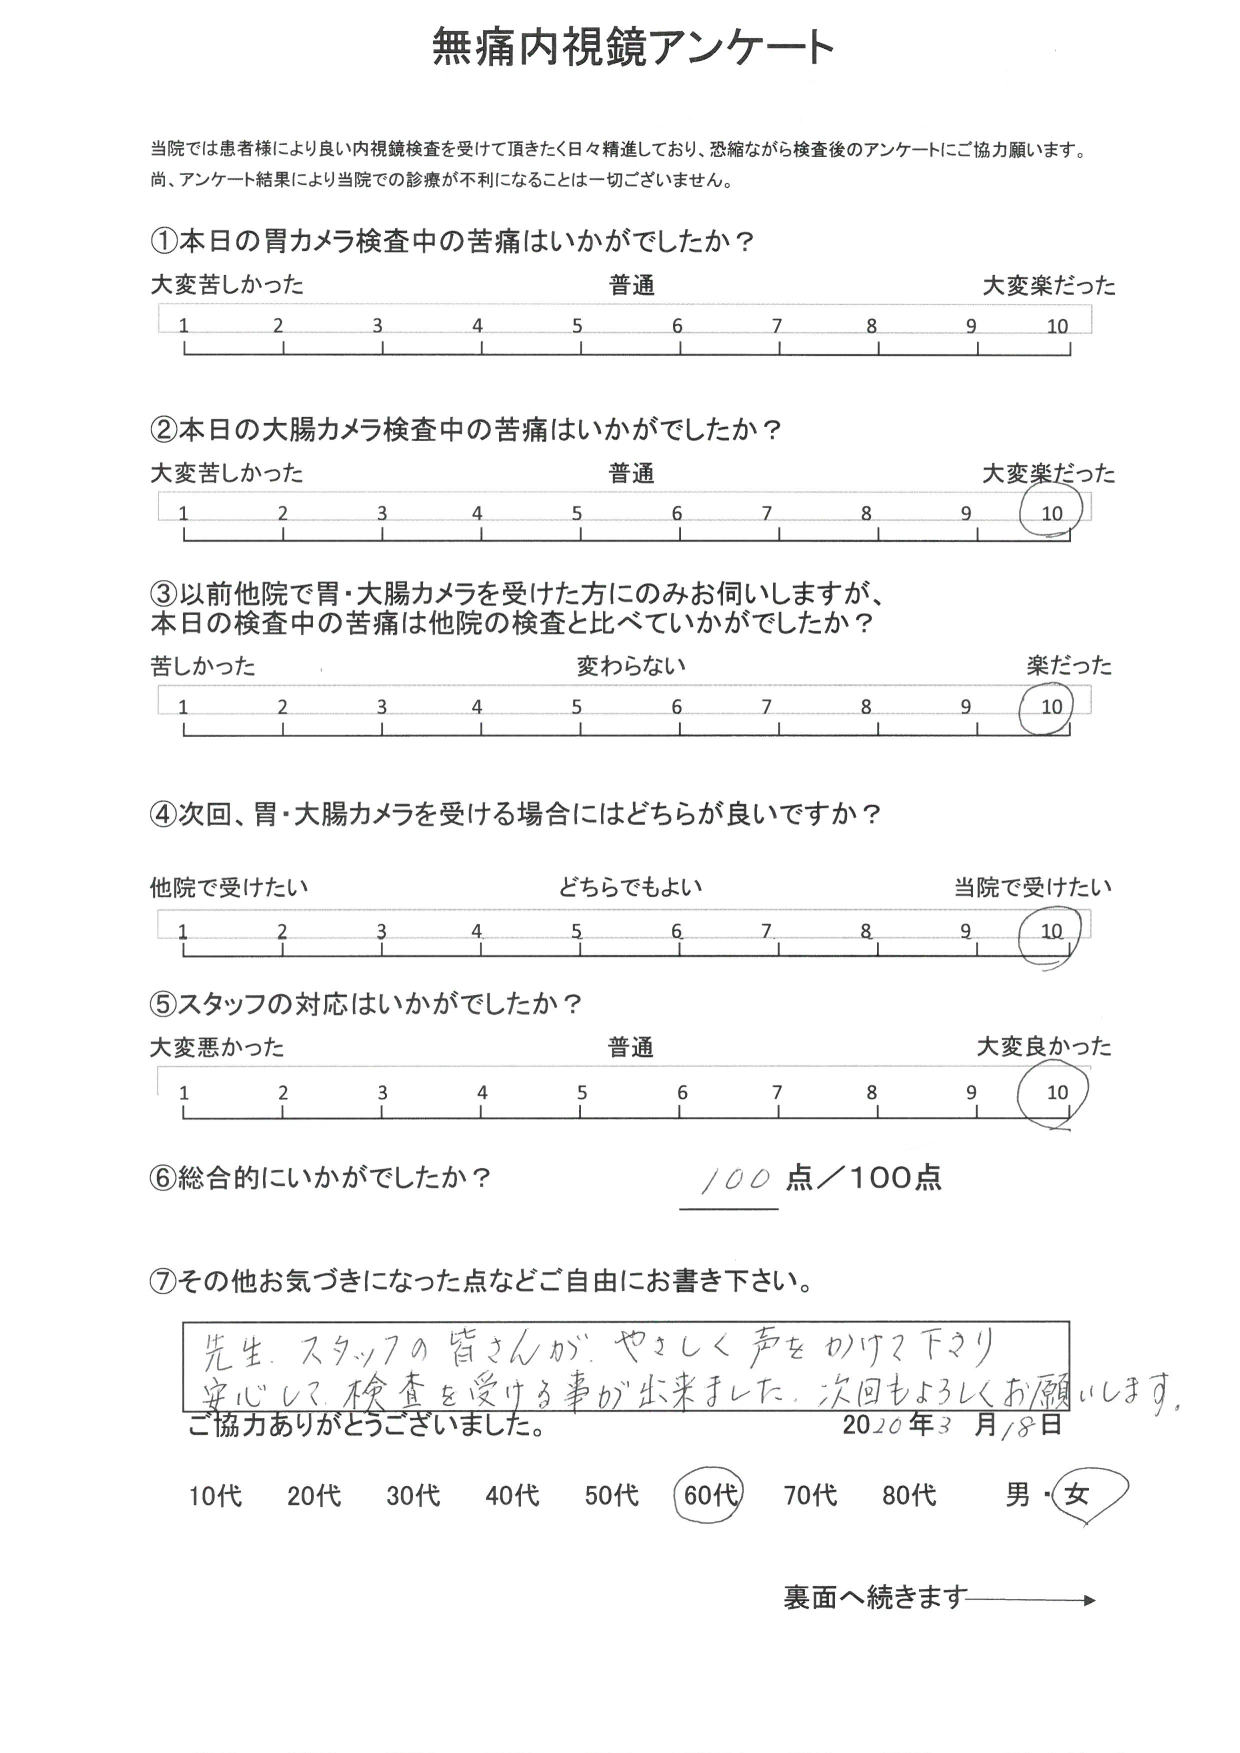 無痛内視鏡アンケート
当院では患者様により良い内視鏡検査を受けて頂きたく日々精進しており、恐縮ながら検査後のアンケートにご協力願います。
尚、アンケート結果により当院での診療が不利になることは一切ございません。
①本日の胃カメラ検査中の苦痛はいかがでしたか？
大変苦しかった 普通 大変楽だった
1 2 3 4 5 6 7 8 9 10
②本日の大腸カメラ検査中の苦痛はいかがでしたか？
大変苦しかった 普通 大変楽だった
1 2 3 4 5 6 7 8 9 10
③以前他院で胃・大腸カメラを受けた方にのみお伺いしますが、
本日の検査中の苦痛は他院の検査と比べていかがでしたか？
苦しかった 変わらない 楽だった
1 2 3 4 5 6 7 8 9 10
④次回、胃・大腸カメラを受ける場合にはどちらが良いですか？
他院で受けたい どちらでもよい 当院で受けたい
1 2 3 4 5 6 7 8 9 10
⑤スタッフの対応はいかがでしたか？
大変悪かった 普通 大変良かった
1 2 3 4 5 6 7 8 9 10
⑥総合的にいかがでしたか？ 100 点／100点
⑦その他お気づきになった点などご自由にお書き下さい。
先生、スタッフの皆さんが、やさしく声をかけて下さり
安心して、検査を受ける事が出来ました。次回もよろしくお願いします。
ご協力ありがとうございました。 2020年3月18日
10代 20代 30代 40代 50代 60代 70代 80代 男・女
裏面へ続きます